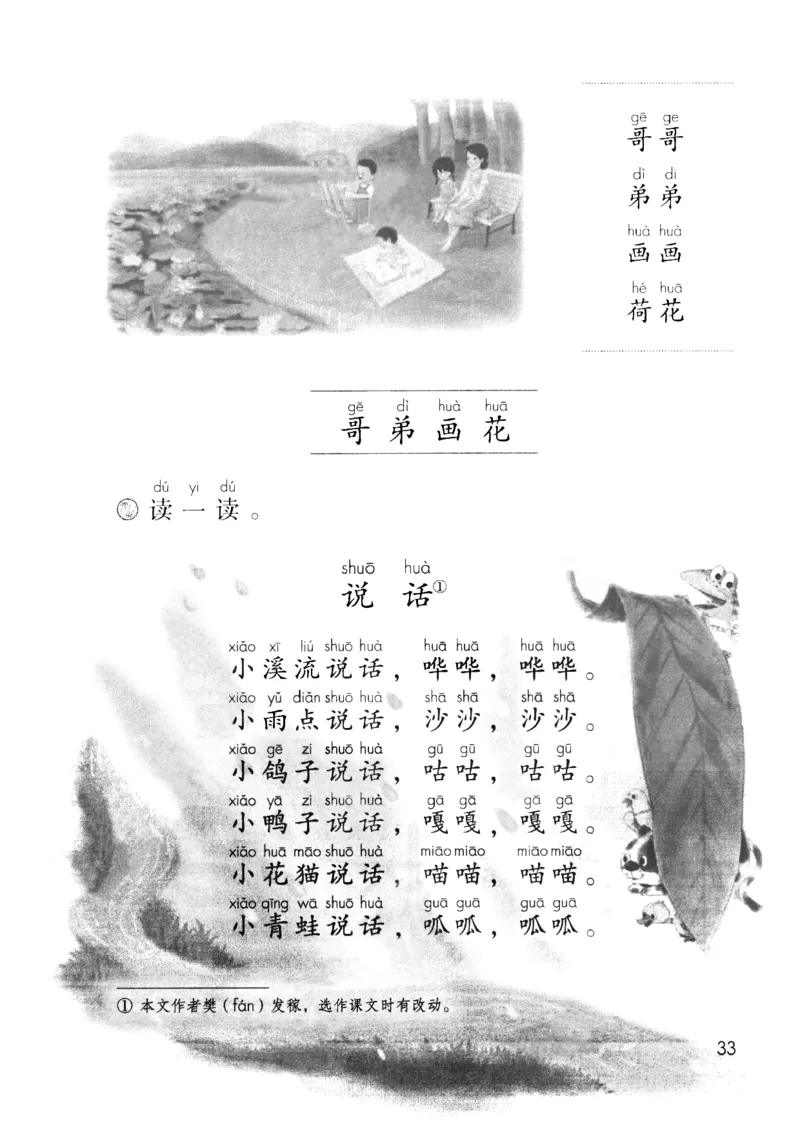 gē ge
哥哥
dì di
弟弟
huà huà
画画
hé huā
荷花
gē dì huà huā
哥 弟 画 花
dú yi dú
读一读。
shuō huà
说 话①
xiǎo xī liú shuō huà huā huā huā huā
小溪流说话，哗哗，哗哗。
xiǎo yǔ diǎn shuō huà shā shā shā shā
小雨点说话，沙沙，沙沙。
xiǎo gē zi shuō huà gū gū gū gū
小鸽子说话，咕咕，咕咕。
xiǎo yā zi shuō huà gā gā gā gā
小鸭子说话，嘎嘎，嘎嘎。
xiǎo huā māo shuō huà miāo miāo miāo miāo
小花猫说话，喵喵，喵喵。
xiǎo qīng wā shuō huà guā guā guā guā
小青蛙说话，呱呱，呱呱。
① 本文作者樊（fán）发稼，选作课文时有改动。
33